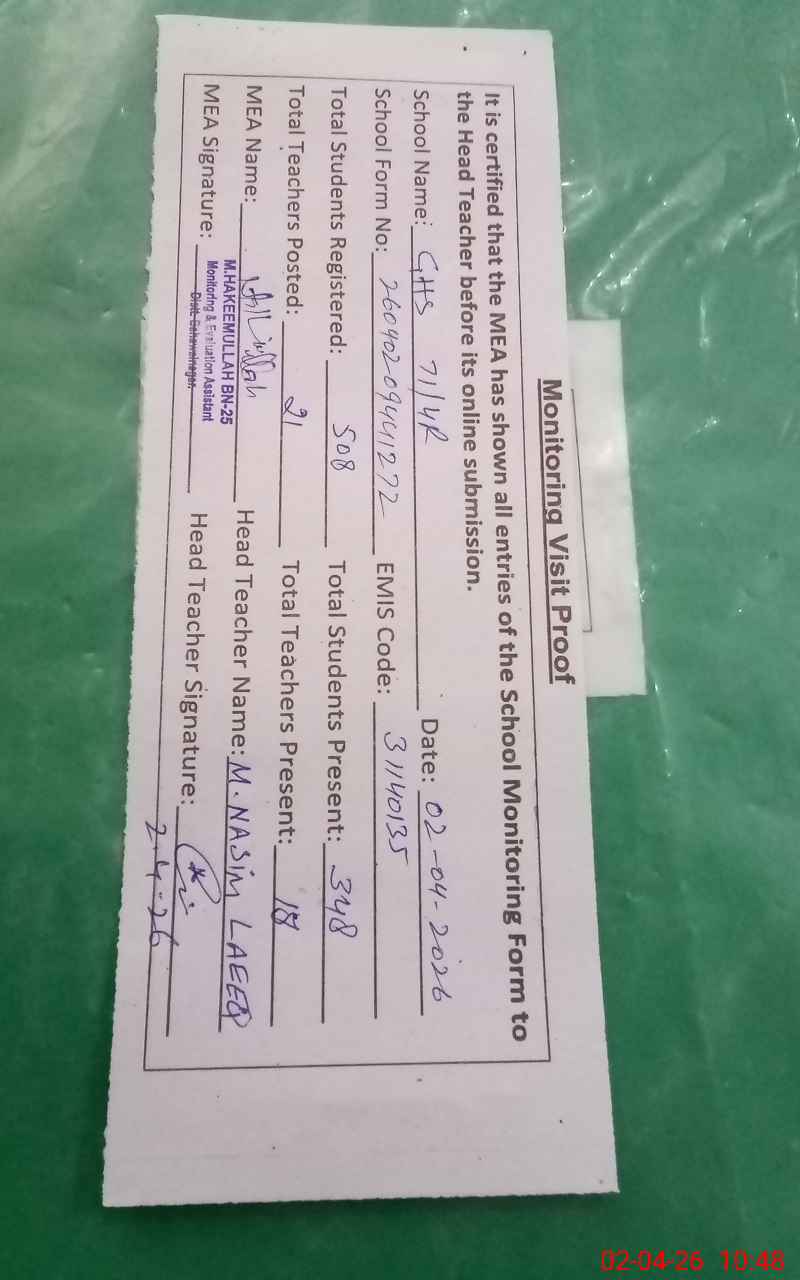 Monitoring Visit Proof
It is certified that the MEA has shown all entries of the School Monitoring Form to
the Head Teacher before its online submission.
School Name: GHS 71/4R Date: 02-04-2026
School Form No: 26040209441272 EMIS Code: 31140135
Total Students Registered: 508 Total Students Present: 348
Total Teachers Posted: 21 Total Teachers Present: 18
MEA Name: Head Teacher Name: M. NASIM LAEEQ
M.HAKEEMULLAH BN-25
Monitoring & Evaluation Assistant
Distt. Bahawalnagar.
MEA Signature: Head Teacher Signature:
2-4-26
02-04-26 10:48